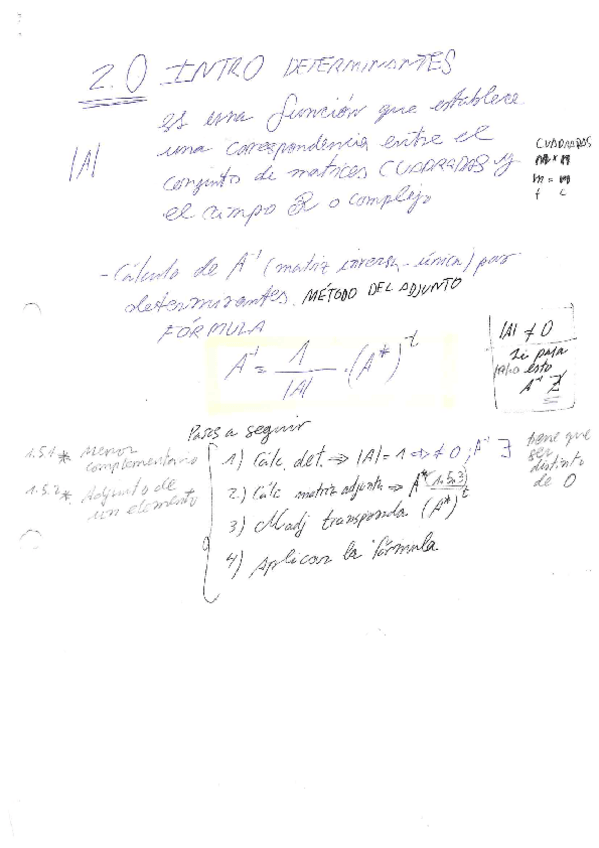 2.0 INTRO DETERMINANTES
es una función que establece
|A| una correspondencia entre el
conjunto de matrices CUADRADAS y
el campo R o complejo
CUADRADAS
m x n
m = n
f c
- Cálculo de A⁻¹ (matriz inversa - única) por
determinantes. MÉTODO DEL ADJUNTO
FÓRMULA
A⁻¹ = 1/|A| · (A*)ᵗ
|A| ≠ 0
esto
A⁻¹ ∄
Pasos a seguir
1.5.1 * Menor
complementario
1.5.2 * Adjunto de
un elemento
1) Cálc. det. ⇒ |A| = 1 ⇒ ≠ 0; A⁻¹ ∃
2) Cálc matriz adjunta ⇒ A* (1.5.3)
3) Madj transponda (A*)ᵗ
4) Aplicar la fórmula
tiene que
ser
distinto
de 0